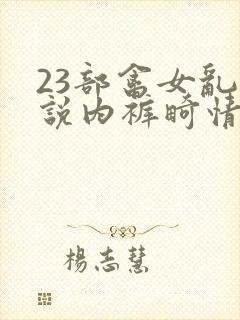 23部畲女亂
說内裤畸情
楊志慧